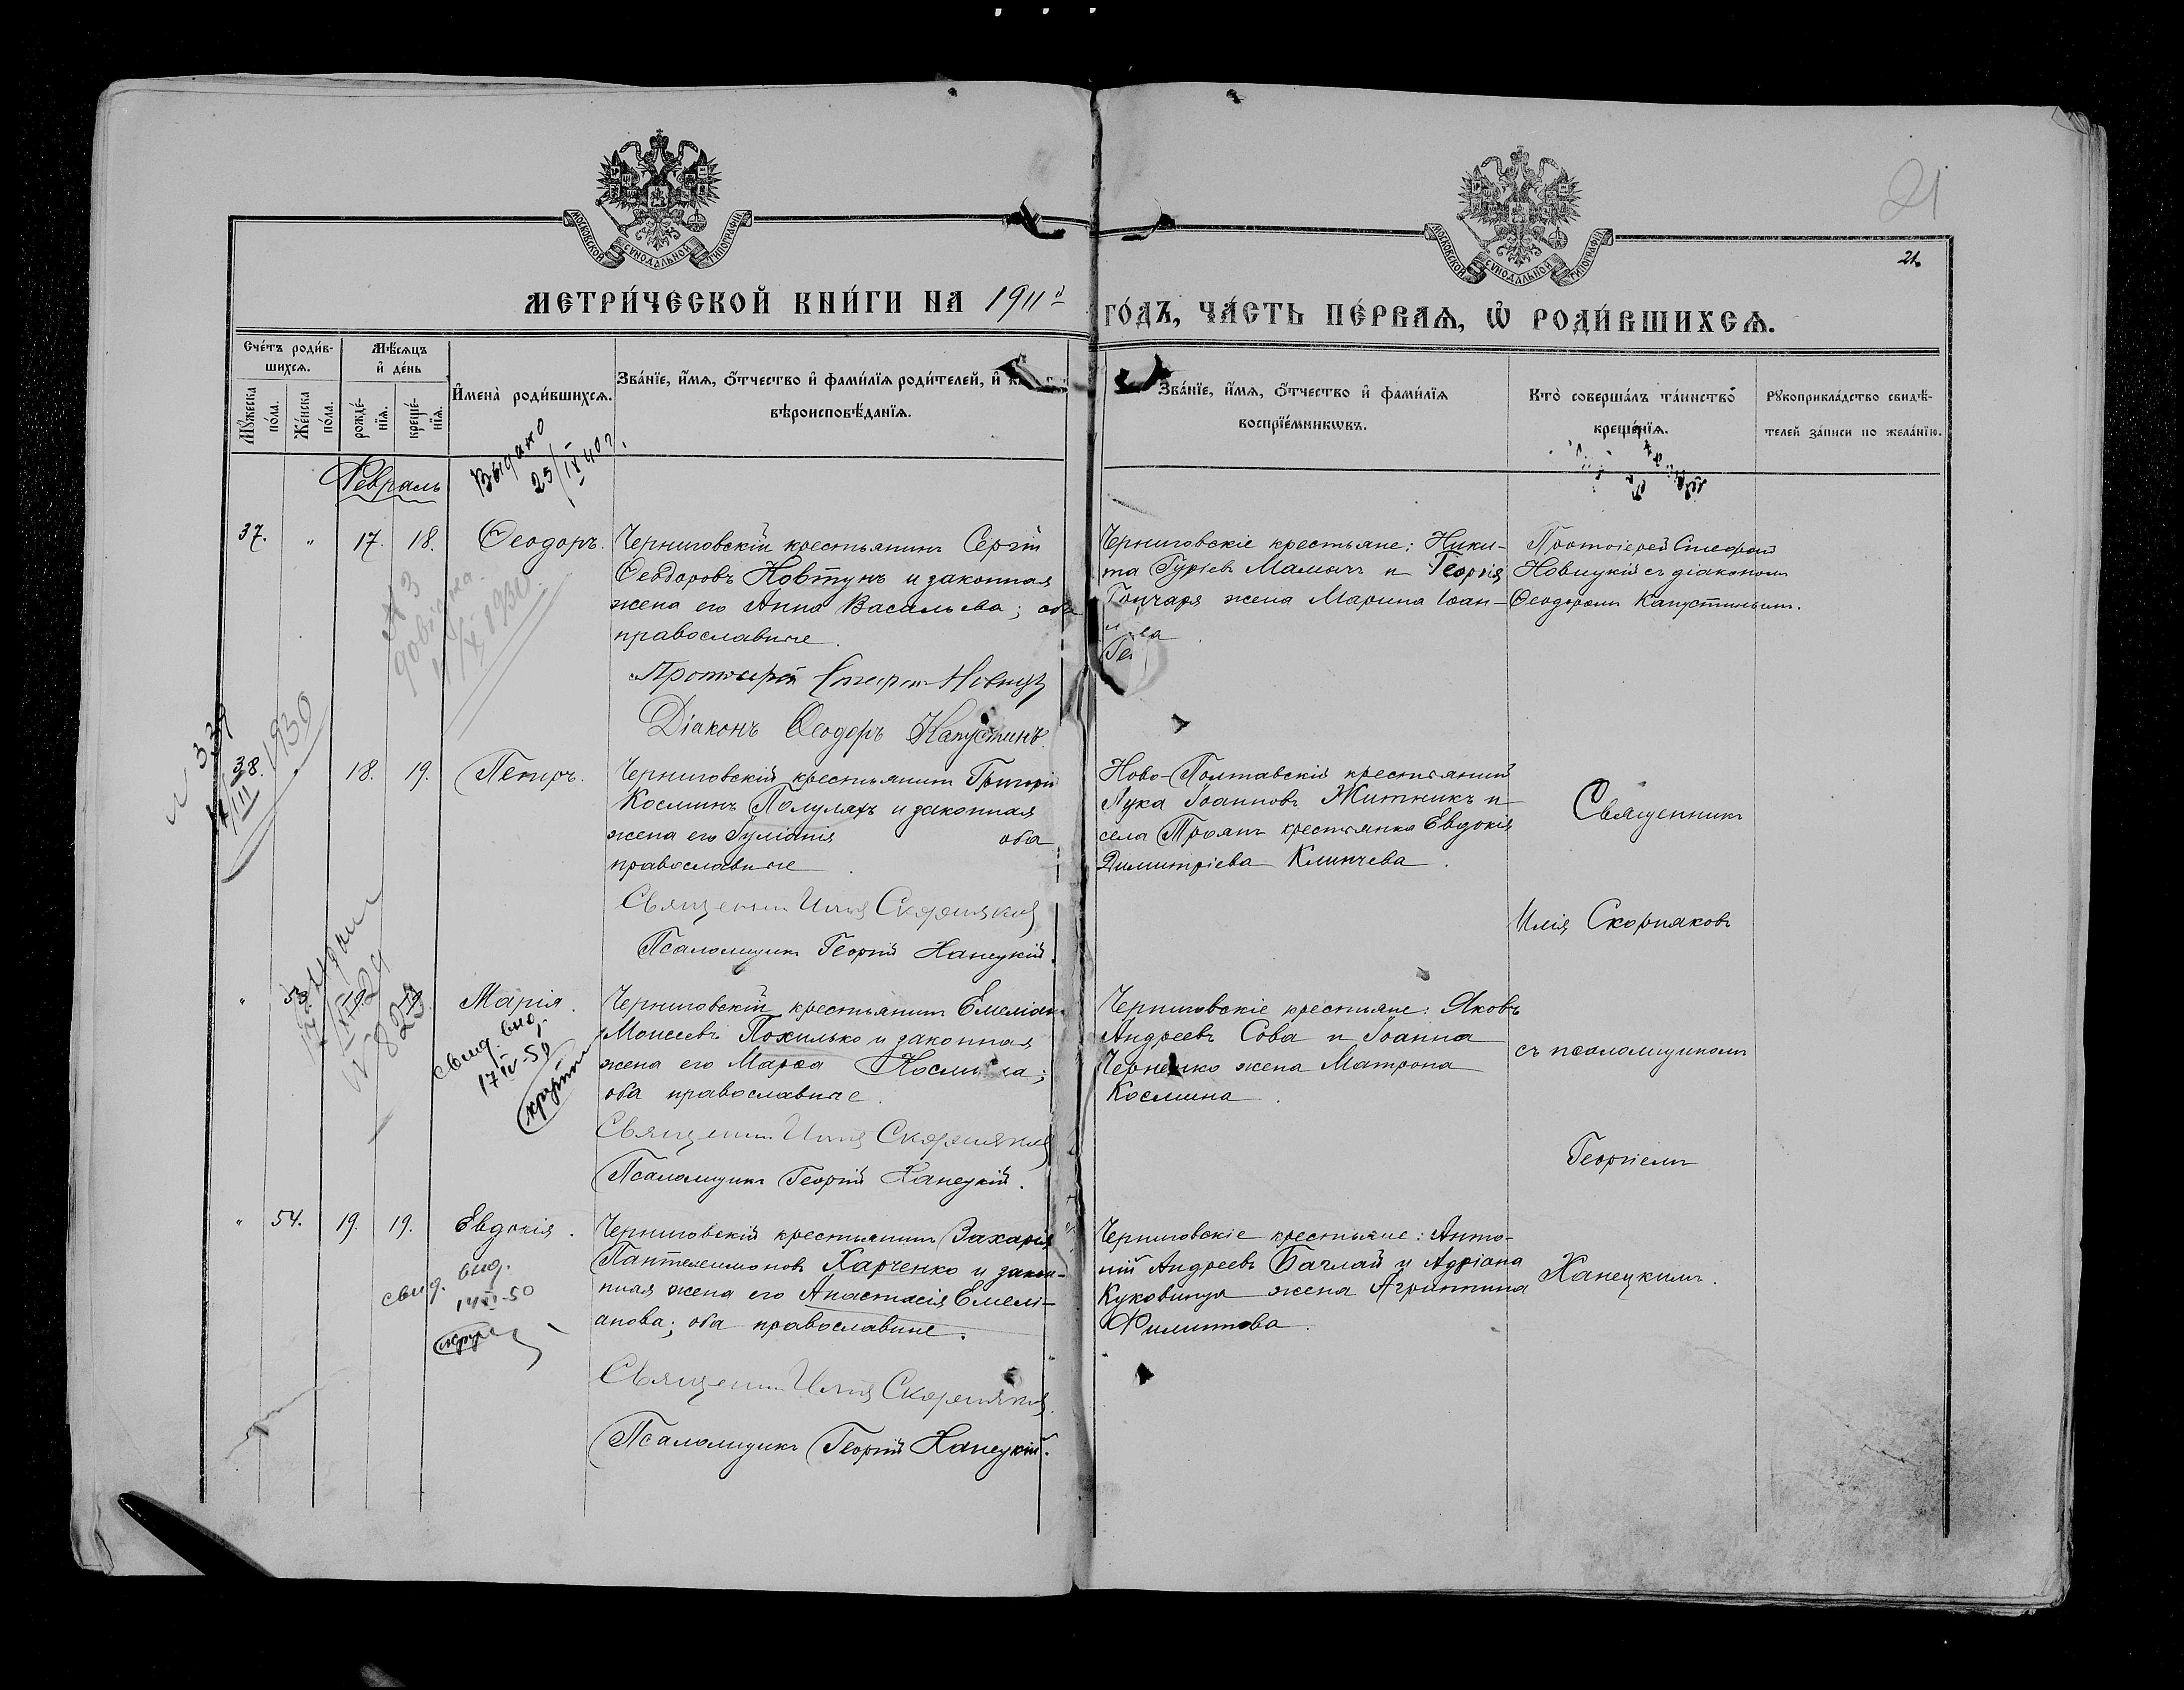 21
21.
МОСКОВСКОЙ СѴНОДАЛЬНОЙ ТИПОГРАФІИ
МОСКОВСКОЙ СѴНОДАЛЬНОЙ ТИПОГРАФІИ
МЕТРИ́ЧЕСКОЙ КНИ́ГИ НА 1911й
ГО́ДЪ, ЧА́СТЬ ПЕ́РВАѦ, Ѡ҆ РОДИ́ВШИХСѦ.
Сче́тъ роди́в-
шихсѧ.
Мѣ́сѧцъ
и҆ де́нь
Мꙋ́жеска
по́ла.
Же́нска
по́ла.
рожде́-
нїѧ.
креще́-
нїѧ.
И҆мена̀ роди́вшихсѧ.
Зва́нїе, и҆́мѧ, ѻ҆́тчество и҆ фами́лїѧ роди́телей, и҆
вѣроисповѣ́данїѧ.
Зва́нїе, и҆́мѧ, ѻ҆́тчество и҆ фами́лїѧ
воспрїе́мникѡвъ.
Кто̀ соверша́лъ та́инство
креще́нїѧ.
Рꙋкоприкла́дство свидѣ́-
телей за́писи по жела́нїю.
Февраль
Выдано
25/IX 40 г.
37. " 17. 18. Ѳеодоръ.
Черниговскій крестьянинъ Сергій
Ѳеодоровъ Ковтунъ и законная
жена его Анна Васильева; оба
православные.
Протоіерей Стефанъ Новицк
Діаконъ Ѳеодоръ Капустинъ.
Черниговскіе крестьяне: Ники-
та Гуріевъ Мамачъ и Георгія
Гончаря жена Марина Іоан-
Протоіерей Стефанъ
Новицкій съ діакономъ
Ѳеодоромъ Капустинымъ.
N 3
довідка
1930
N 339
1930
38. " 18. 19. Петръ.
Черниговскій крестьянинъ Григорій
Косминъ Полуляхъ и законная
жена его Іуліанія оба
православные.
Священникъ Илія Скорняковъ
Псаломщикъ Георгій Ханецкій.
Ново-Полтавскій крестьянинъ
Лука Іоанновъ Житникъ и
села Троянъ крестьянка Евдокія
Димитріева Климчева.
Священникъ
Илія Скорняковъ
" 53. 19. 19. Марія.
N 823
свид. выд.
17 IV-50
Черниговскій крестьянинъ Емеліан
Моисеевъ Похилько и законная
жена его Марѳа Косми на;
оба православные.
Священникъ Илія Скорняковъ
Псаломщикъ Георгій Ханецкій.
Черниговскіе крестьяне: Яковъ
Андреевъ Сова и Іоанна
Черненко жена Матрона
Космина.
съ псаломщикомъ
Георгіемъ
" 54. 19. 19. Евдокія.
свид. выд.
14 XI-50
Черниговскій крестьянинъ Захарія
Пантелеимоновъ Харченко и закон-
ная жена его Анастасія Емелі-
анова; оба православные.
Священникъ Илія Скорняковъ.
Псаломщикъ Георгій Ханецкій.
Черниговскіе крестьяне: Анто-
ній Андреевъ Бачлай и Адріана
Куковинца жена Агриппина
Филиппова.
Ханецкимъ.